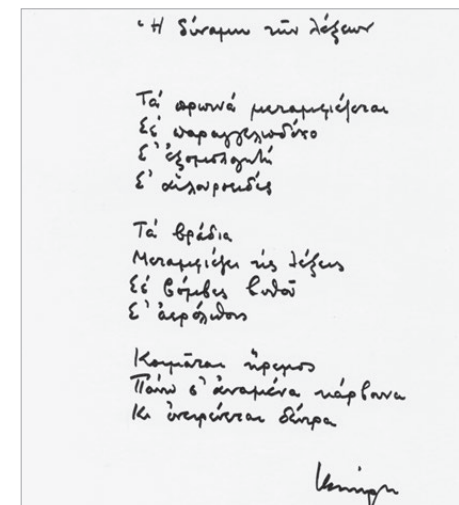 Ἡ δύναμη τῶν λέξεων
Τά πρωινά μεταμφιέζεται
Σέ παραγγελιοδόχο
Σ' ἐξομολογητή
Σ' αἰλουροειδές
Τά βράδια
Μεταμφιέζει τίς λέξεις
Σέ βόμβες βυθοῦ
Σ' ἀερόλιθους
Κοιμᾶται ἤρεμος
Πάνω σ' ἀναμένα κάρβουνα
Κι ὀνειρεύεται δέντρα